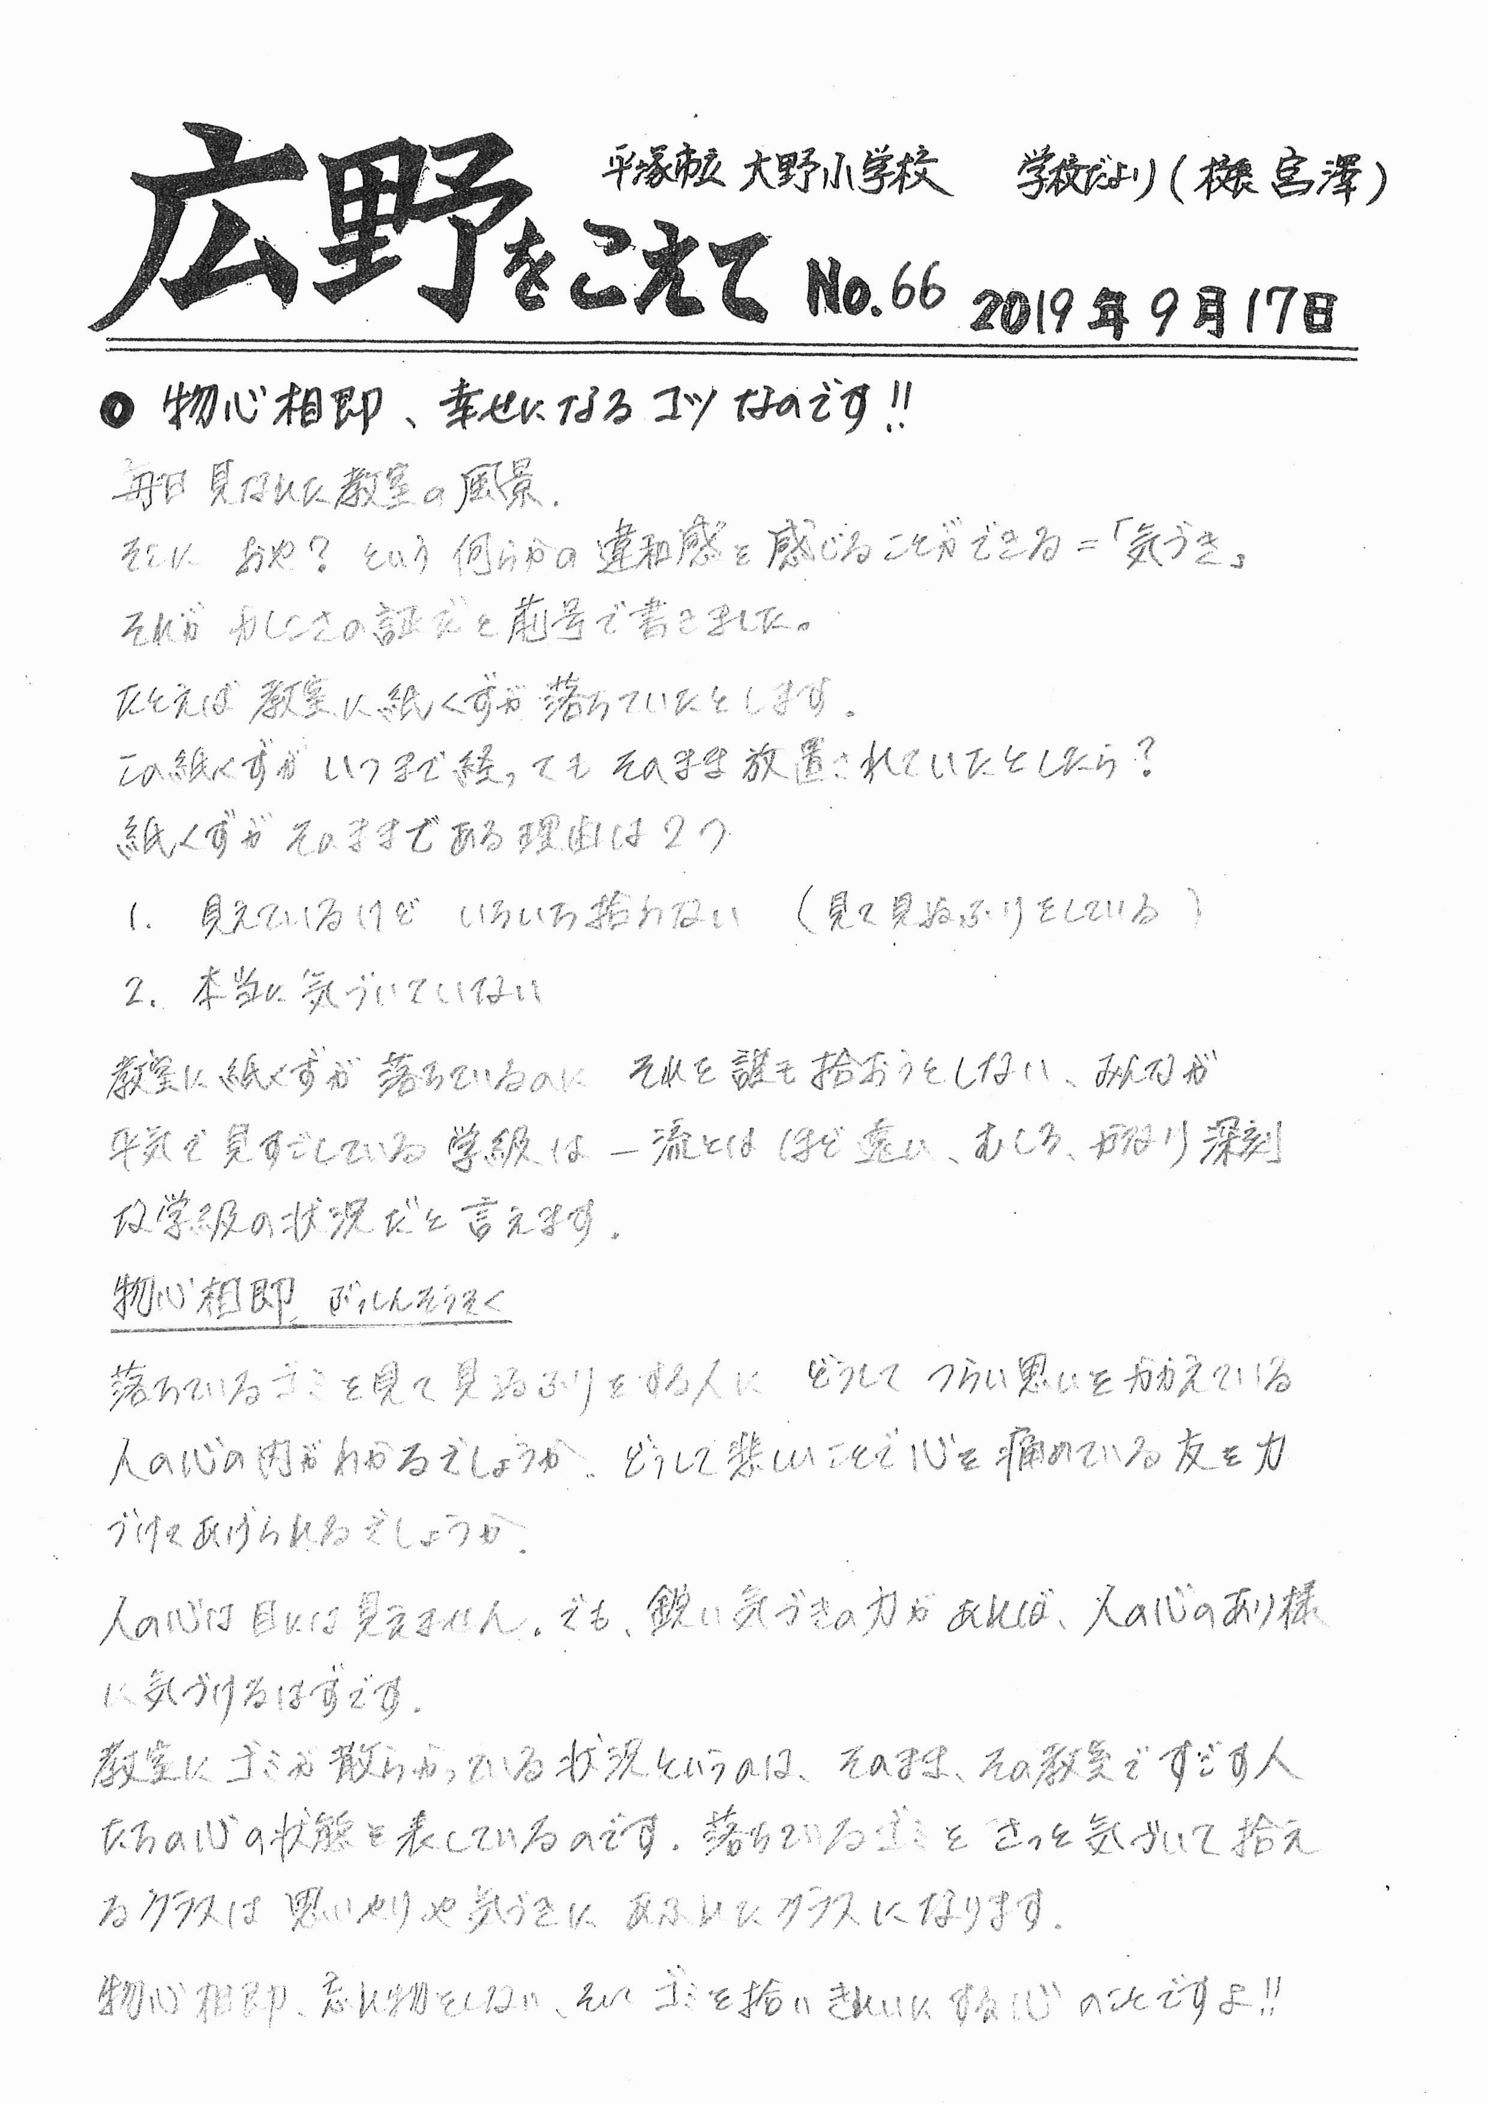 平塚市立 大野小学校 学校だより(校長 宮澤)
広野をこえて No.66 2019年9月17日
● 物心相即、幸せになるコツなのです!!
毎日見なれた教室の風景.
そこに おや? という 何らかの違和感を感じることができる=「気づき」
それが かしこさの証だと前号で書きました。
たとえば 教室に紙くずが落ちていたとします.
この紙くずが いつまで経っても そのまま放置されていたとしたら?
紙くずが そのままである理由は2つ
1. 見えているけど いちいち拾わない (見て見ぬふりをしている)
2. 本当に気づいていない
教室に紙くずが 落ちているのに それを誰も拾おうとしない、みんなが
平気で見すごしている学級は 一流とは ほど遠い、むしろ、かなり深刻
な学級の状況だと言えます.
物心相即 ぶっしんそうそく
落ちているゴミを見て見ぬふりをする人に どうして つらい思いをかかえている
人の心の内がわかるでしょうか. どうして悲しいことで心を痛めている友を力
づけてあげられるでしょうか.
人の心は目には見えません. でも、鋭い気づきの力があれば、人の心のあり様
に気づけるはずです.
教室にゴミが散らかっている状況というのは、そのまま、その教室ですごす人
たちの心の状態を表しているのです. 落ちているゴミを さっと気づいて拾え
るクラスは 思いやりや気づきに あふれたクラスになります.
物心相即、忘れ物をしない、そして ゴミを拾いきれいにする心のことですよ!!